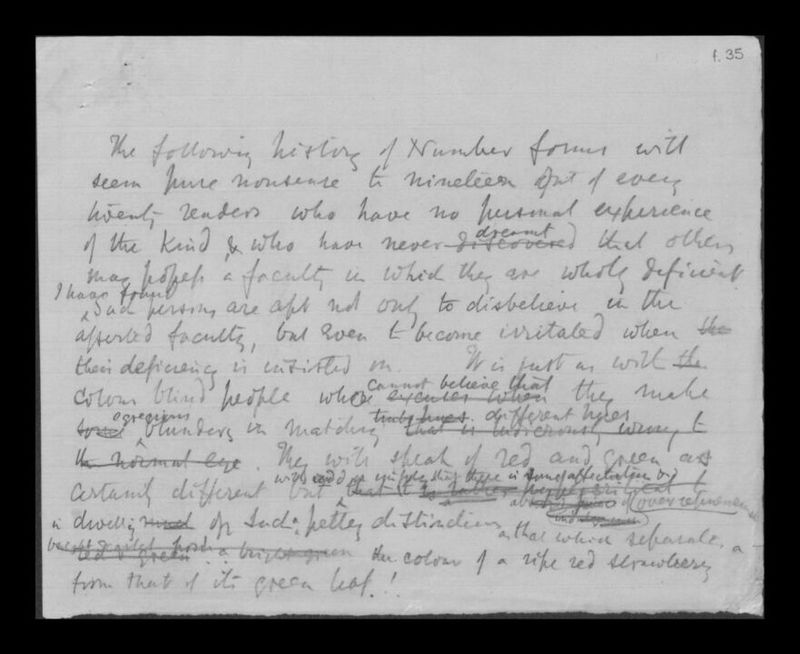 f. 35
The following history of Number forms will
seem pure nonsense to nineteen out of every
twenty readers who have no personal experience
dreamt
of the kind & who have never discovered that others
may possess a faculty in which they are wholly deficient
I have found
Such persons are apt not only to disbelieve in the
asserted faculty, but even to become irritated when the
their deficiency is insisted on. It is just as with the
cannot believe that
colour blind people who execute when they make
egregious different hues
some blunders in matching that is ludicrously wrong to
the normal eye. They will speak of red and green as
will add or imply that there is some affectation or
certainly different but that it is rather
about over refinement
in dwelling much on such petty distinctions as that which separates a
red & green a bright green the colour of a ripe red strawberry
from that of its green leaf!